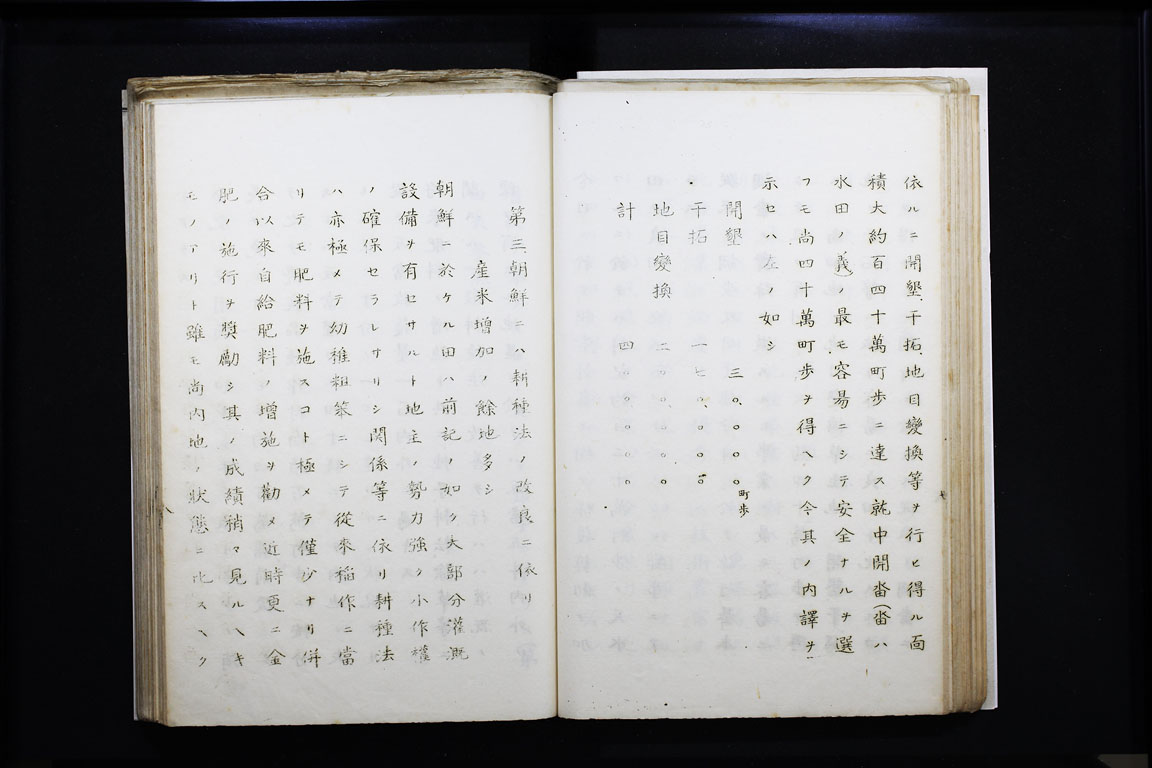 依ルニ開墾、干拓、地目變換等ヲ行ヒ得ル面
積大約百四十萬町歩ニ達ス就中開畓(畓ハ
水田ノ義)ノ最モ容易ニシテ安全ナルヲ選
フモ尚四十萬町歩ヲ得ヘク今其ノ内譯ヲ
示セハ左ノ如シ
開墾 三〇、〇〇〇〇町歩
干拓 一七、〇〇〇
地目變換 二〇〇〇〇
計 四〇〇〇〇〇
第三 朝鮮ニハ耕種法ノ改良ニ依リ
産米増加ノ餘地多シ
朝鮮ニ於ケル田ハ前記ノ如ク大部分灌漑
設備ヲ有セサルト地主ノ勢力強ク小作權
ノ確保セラレサリシ關係等ニ依リ耕種法
ハ亦極メテ幼稚粗笨ニシテ從來稲作ニ當
リテモ肥料ヲ施スコト極メテ僅少ナリ併
合以來自給肥料ノ増施ヲ勸メ近時更ニ金
肥ノ施行ヲ奬勵シ其ノ成績稍々見ルヘキ
モノアリト雖モ尚内地ノ狀態ニ比スヘク